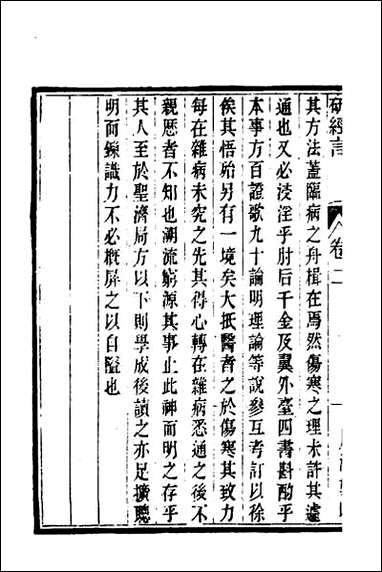 研經言
卷二
其方法蓋臨病之舟楫在焉然傷寒之理未許其遽
通也又必浸淫乎肘后千金及翼外臺四書斟酌乎
本事方百證歌九十論明理論等說參互考訂以徐
俟其悟始另有一境矣大抵醫者之於傷寒其致力
每在雜病未究之先其得心轉在雜病悉通之後不
親歷者不知也溯流窮源其事止此神而明之存乎
其人至於聖濟局方以下則學成後讀之亦足擴聰
明而鍊識力不必概屏之以自隘也